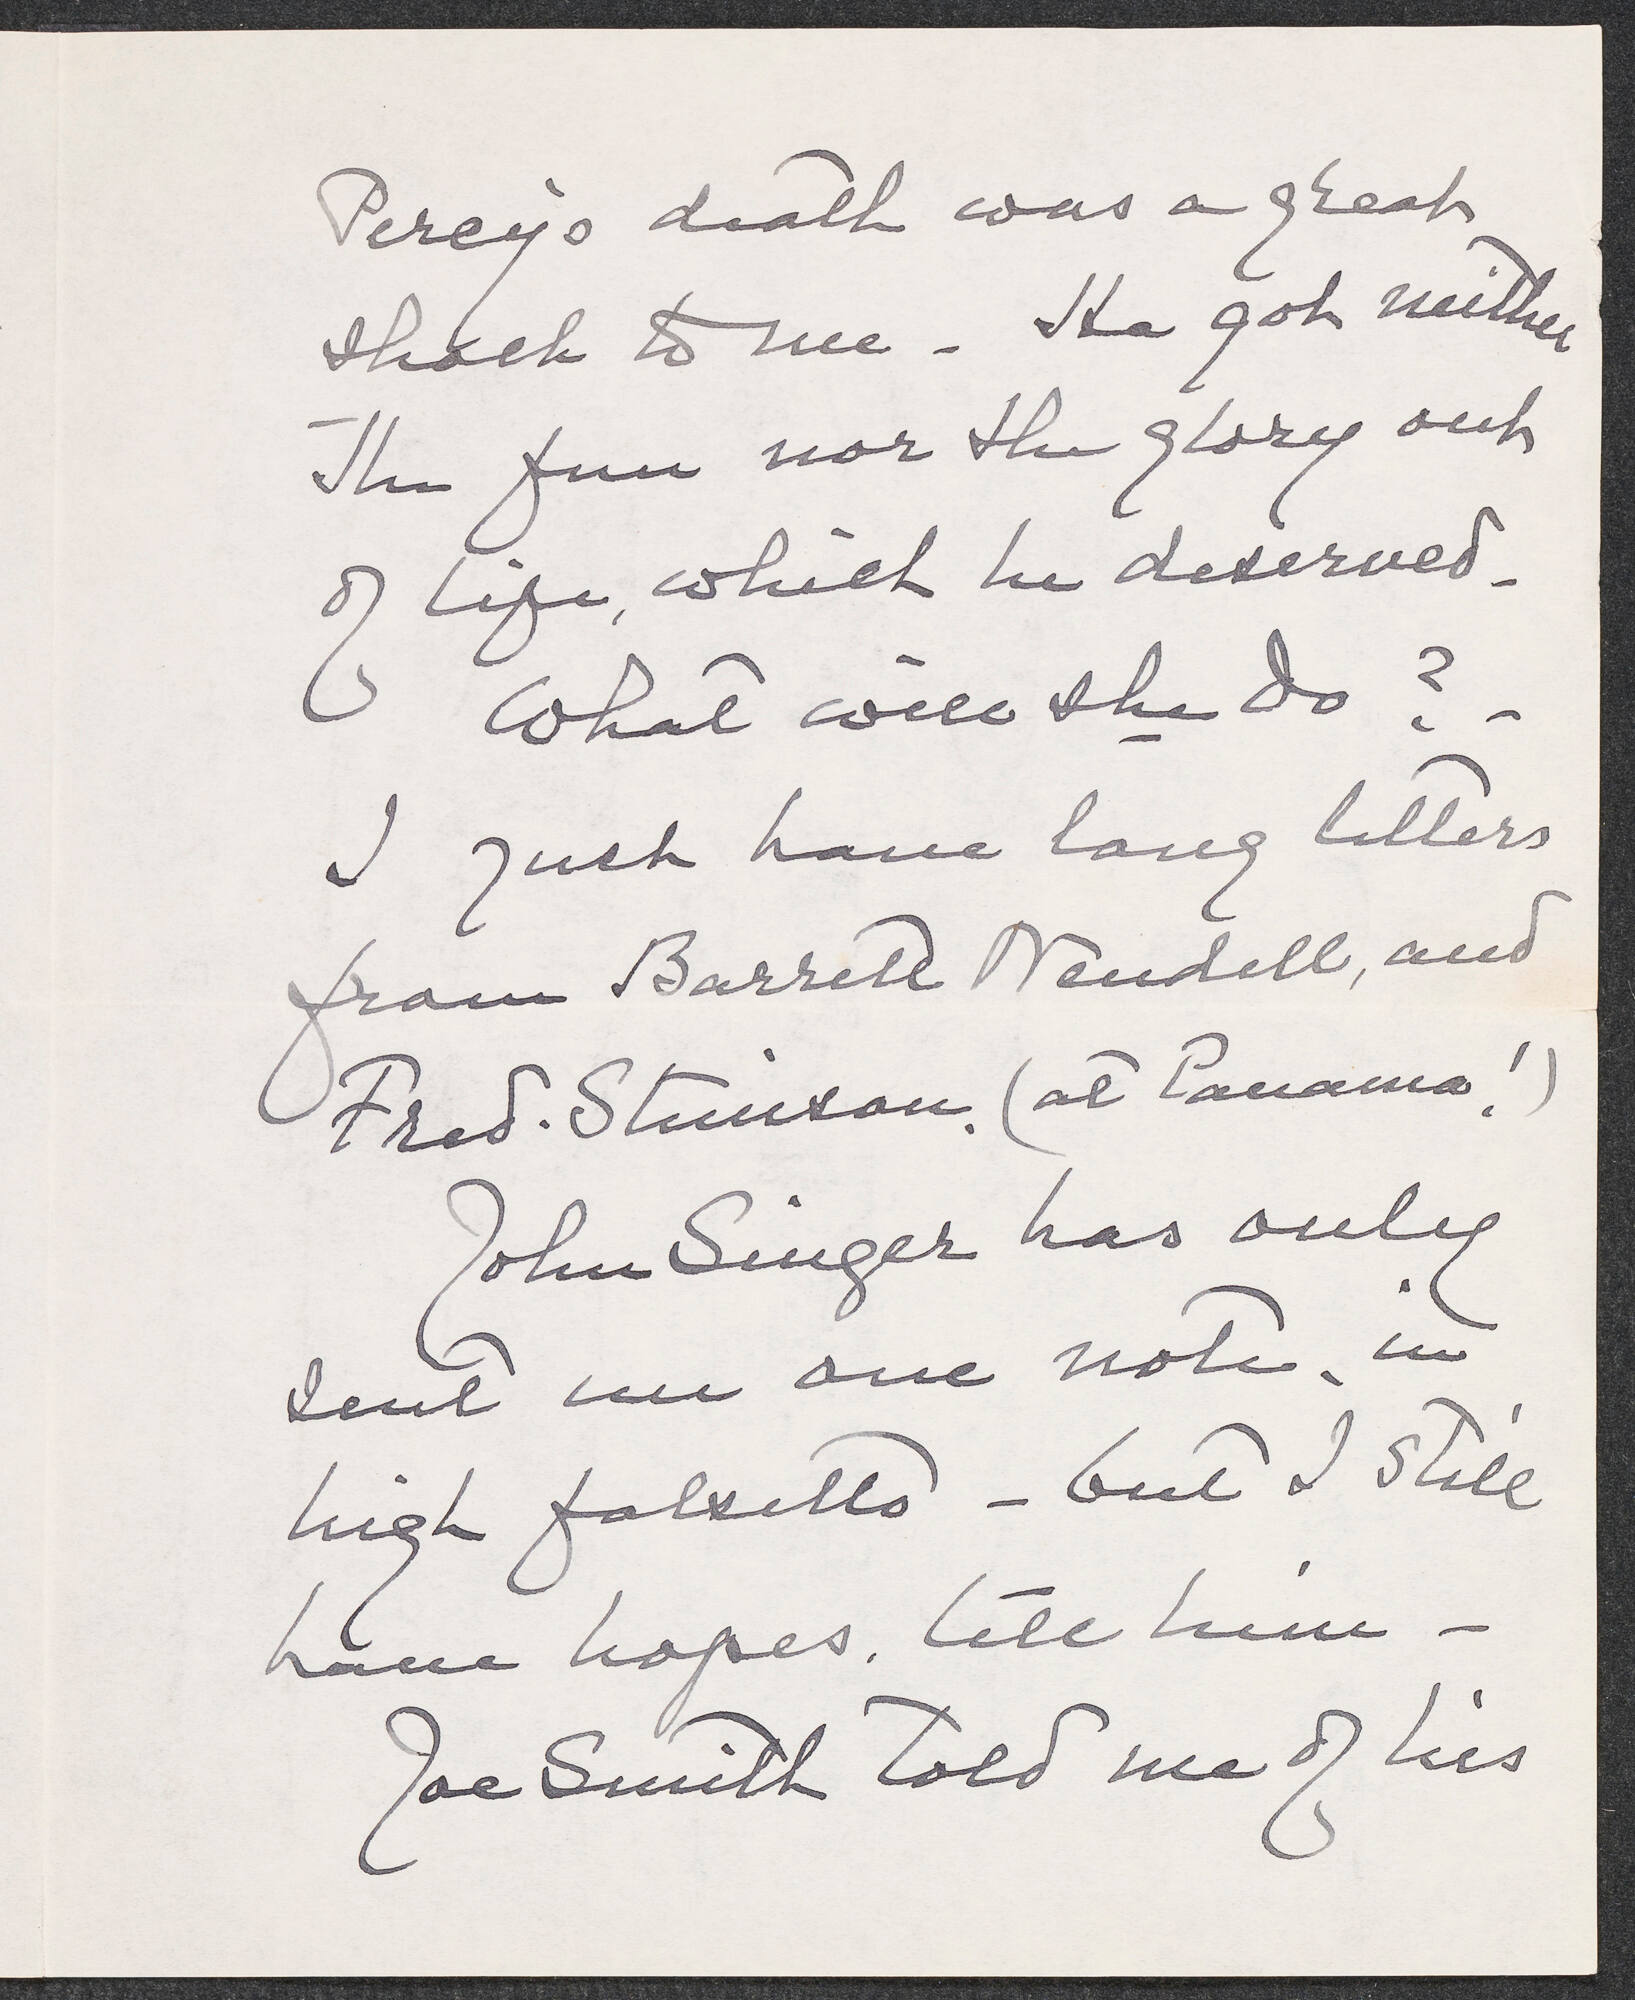 Percy's death was a great
shock to me - He got neither
The fun nor the glory out
of life, which he deserved -
What will she do ? -
I just have long letters
from Barrett Wendell, and
Fred. Stimson. (at Panama!)
John Singer has only
sent me one note, in
high falsetto - but I still
have hopes. tell him -
Joe Smith told me of his